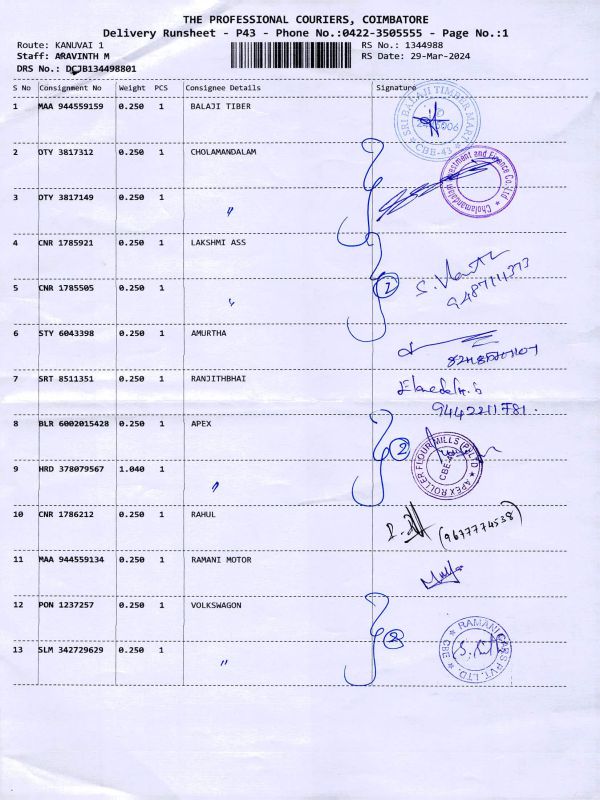 THE PROFESSIONAL COURIERS, COIMBATORE
Delivery Runsheet - P43 - Phone No.:0422-3505555 - Page No.:1
Route: KANUVAI 1 RS No.: 1344988
Staff: ARAVINTH M RS Date: 29-Mar-2024
DRS No.: DCJB134498801
S No Consignment No Weight PCS Consignee Details Signature
1 MAA 944559159 0.250 1 BALAJI TIBER
SRI BALAJI TIMBER MART CBE-43
2 OTY 3817312 0.250 1 CHOLAMANDALAM
Cholamandalam Investment and Finance Co. Ltd
3 OTY 3817149 0.250 1 "
4 CNR 1785921 0.250 1 LAKSHMI ASS
5 CNR 1785505 0.250 1 " 2 S.
9487111373
6 STY 6043398 0.250 1 AMURTHA
7 SRT 8511351 0.250 1 RANJITHBHAI
9442211781.
8 BLR 6002015428 0.250 1 APEX 2
APEX ROLLER FLOUR MILLS (P) LTD CBE
9 HRD 378079567 1.040 1 "
10 CNR 1786212 0.250 1 RAHUL (9677774538)
11 MAA 944559134 0.250 1 RAMANI MOTOR
12 PON 1237257 0.250 1 VOLKSWAGON 2
RAMANI CARS PVT. LTD. CBE
13 SLM 342729629 0.250 1 "